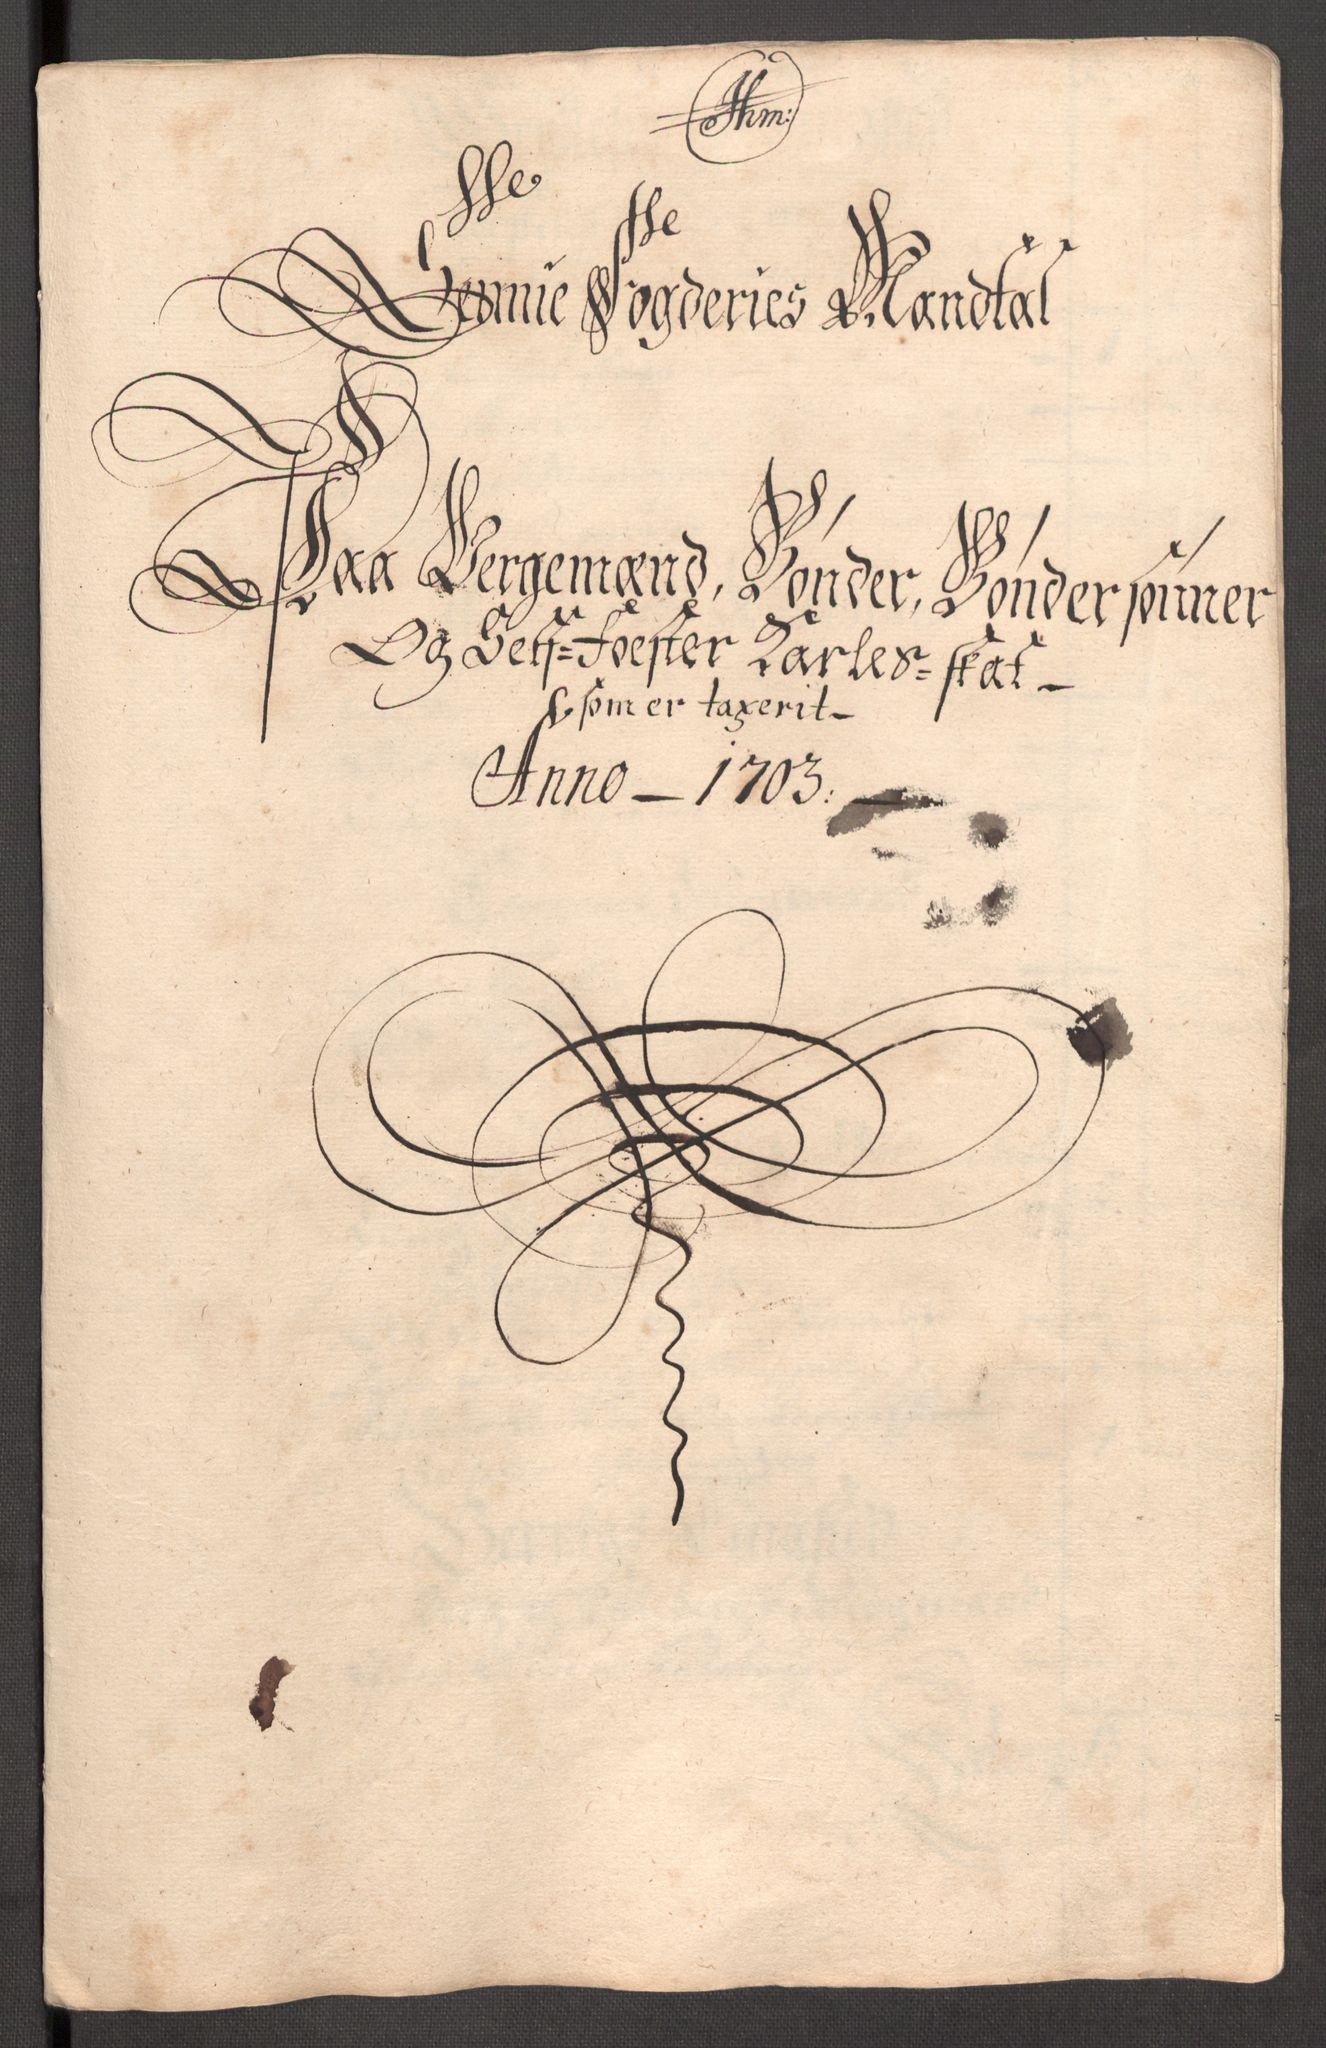 Jhm:
Sennie Fogderies Mandtal
Paa Vergemænd, Bønder, Bønder sønner
Og Seÿ=Foester Karles=skat
som er taxerit
Anno 1703: